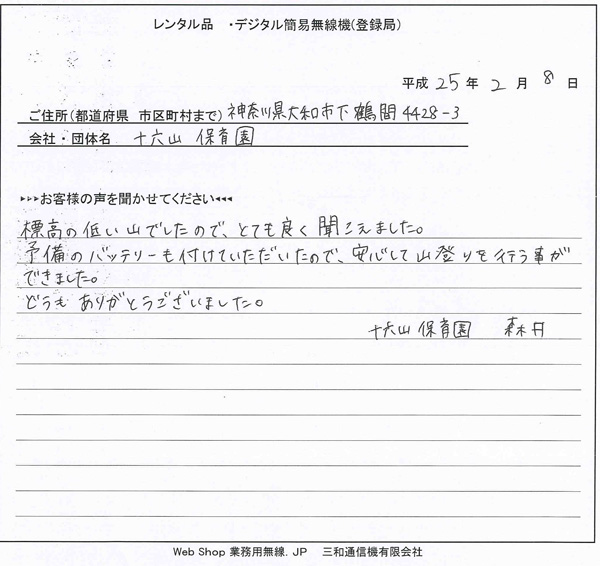 レンタル品 ・デジタル簡易無線機(登録局)
平成 25 年 2 月 8 日
ご住所(都道府県 市区町村まで) 神奈川県大和市下鶴間4428-3
会社・団体名 十六山 保育園
▸▸▸お客様の声を聞かせてください◂◂◂
標高の低い山でしたので、とても良く聞こえました。
予備のバッテリーも付けていただいたので、安心して山登りを行う事が
できました。
どうもありがとうございました。
十六山 保育園 森井
Web Shop 業務用無線.JP 三和通信機有限会社